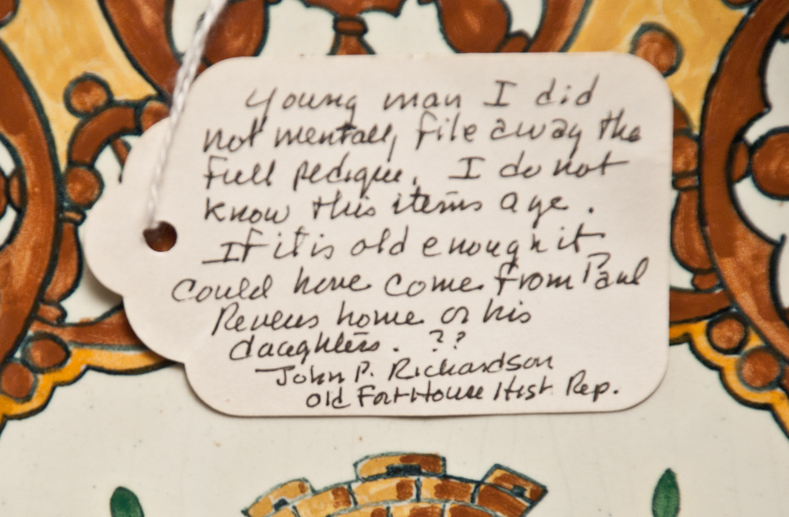 Young man I did
not mentally file away the
full pedigree. I do not
know this items age.
If it is old enough it
could have come from Paul
Reveres home or his
daughters. ??
John P. Richardson
Old Fort House Hist Rep.